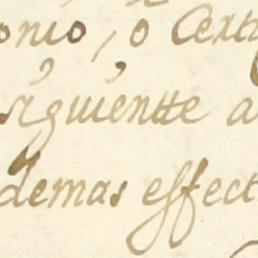 onio, ò Certi
siguientte a
demas effect